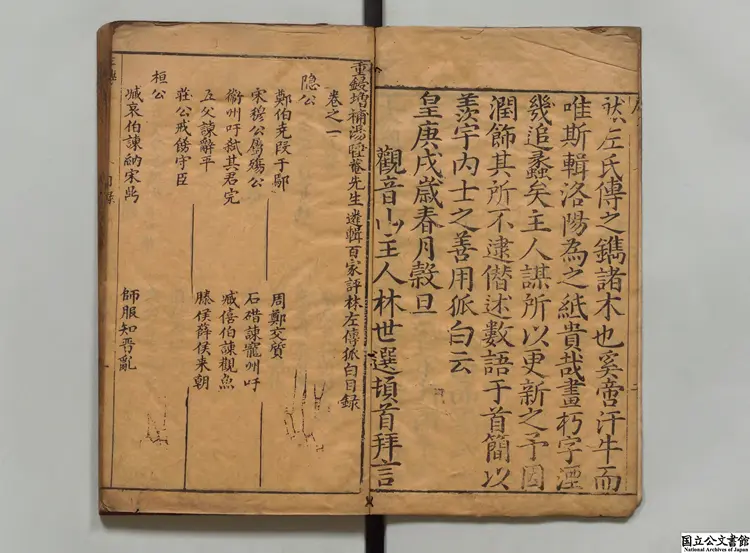 狀左氏傳之鐫諸木也奚啻汗牛而
唯斯輯洛陽為之紙貴哉畫朽字湮
幾追蠡矣主人謀所以更新之予因
潤飾其所不逮僣述數語于首簡以
羨宇內士之善用狐白云
皇庚戌歲春月穀旦
觀音山主人林世選頓首拜言
重鋟增補湯睡菴先生遴輯百家評林左傳狐白目録
卷之一
隐公
鄭伯克段于鄢
周鄭交質
宋穆公屬殤公
石碏諫寵州吁
衞州吁弑其君完
臧僖伯諫觀魚
五父諫辭平
滕侯薛侯来朝
莊公戒餝守臣
桓公
臧哀伯諫納宋鼎
師服知晋亂
国立公文書館
National Archives of Japan